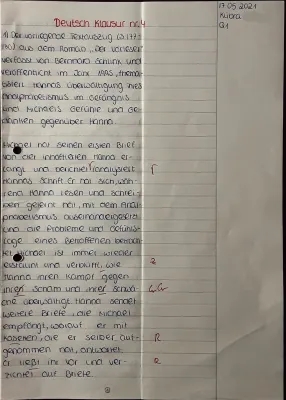 17.05.2021
Kübra
Q1
Deutsch Klausur nr.4
1) Der vorliegende Textauszug (S.177
) aus dem Roman „Der Vorleser"
verfasst von Bernhard Schlink und
veröffentlicht im Jahr 1995, thema-
tisiert Hannas Überwältigung ihres
Analphabetismus im Gefängnis
und Michaels Gefühle und Ge-
danken gegenüber Hanna.
Michael hat seinen ersten Brief
von der inhaftierten Hanna er-
langt und berichtet analysiert
Hannas Schrift er hat sich, wäh-
rend Hanna lesen und schrei-
ben gelernt hat, mit dem Anal-
phabetismus auseinandergesetzt
und die Probleme und Gefühls-
lage eines Betroffenen betrach-
tet. Michael ist immer wieder
erstaunt und verblüfft, wie
Hanna ihren Kampf gegen
ihren Scham und ihrer Schwä-
che überwältigt. Hanna sendet
weitere Briefe, die Michael
empfängt, worauf er mit
Kasetten, die er selber auf-
genommen hat, antwortet.
Er ließt ihr vor und ver-
zichtet auf Briefe.
R
R